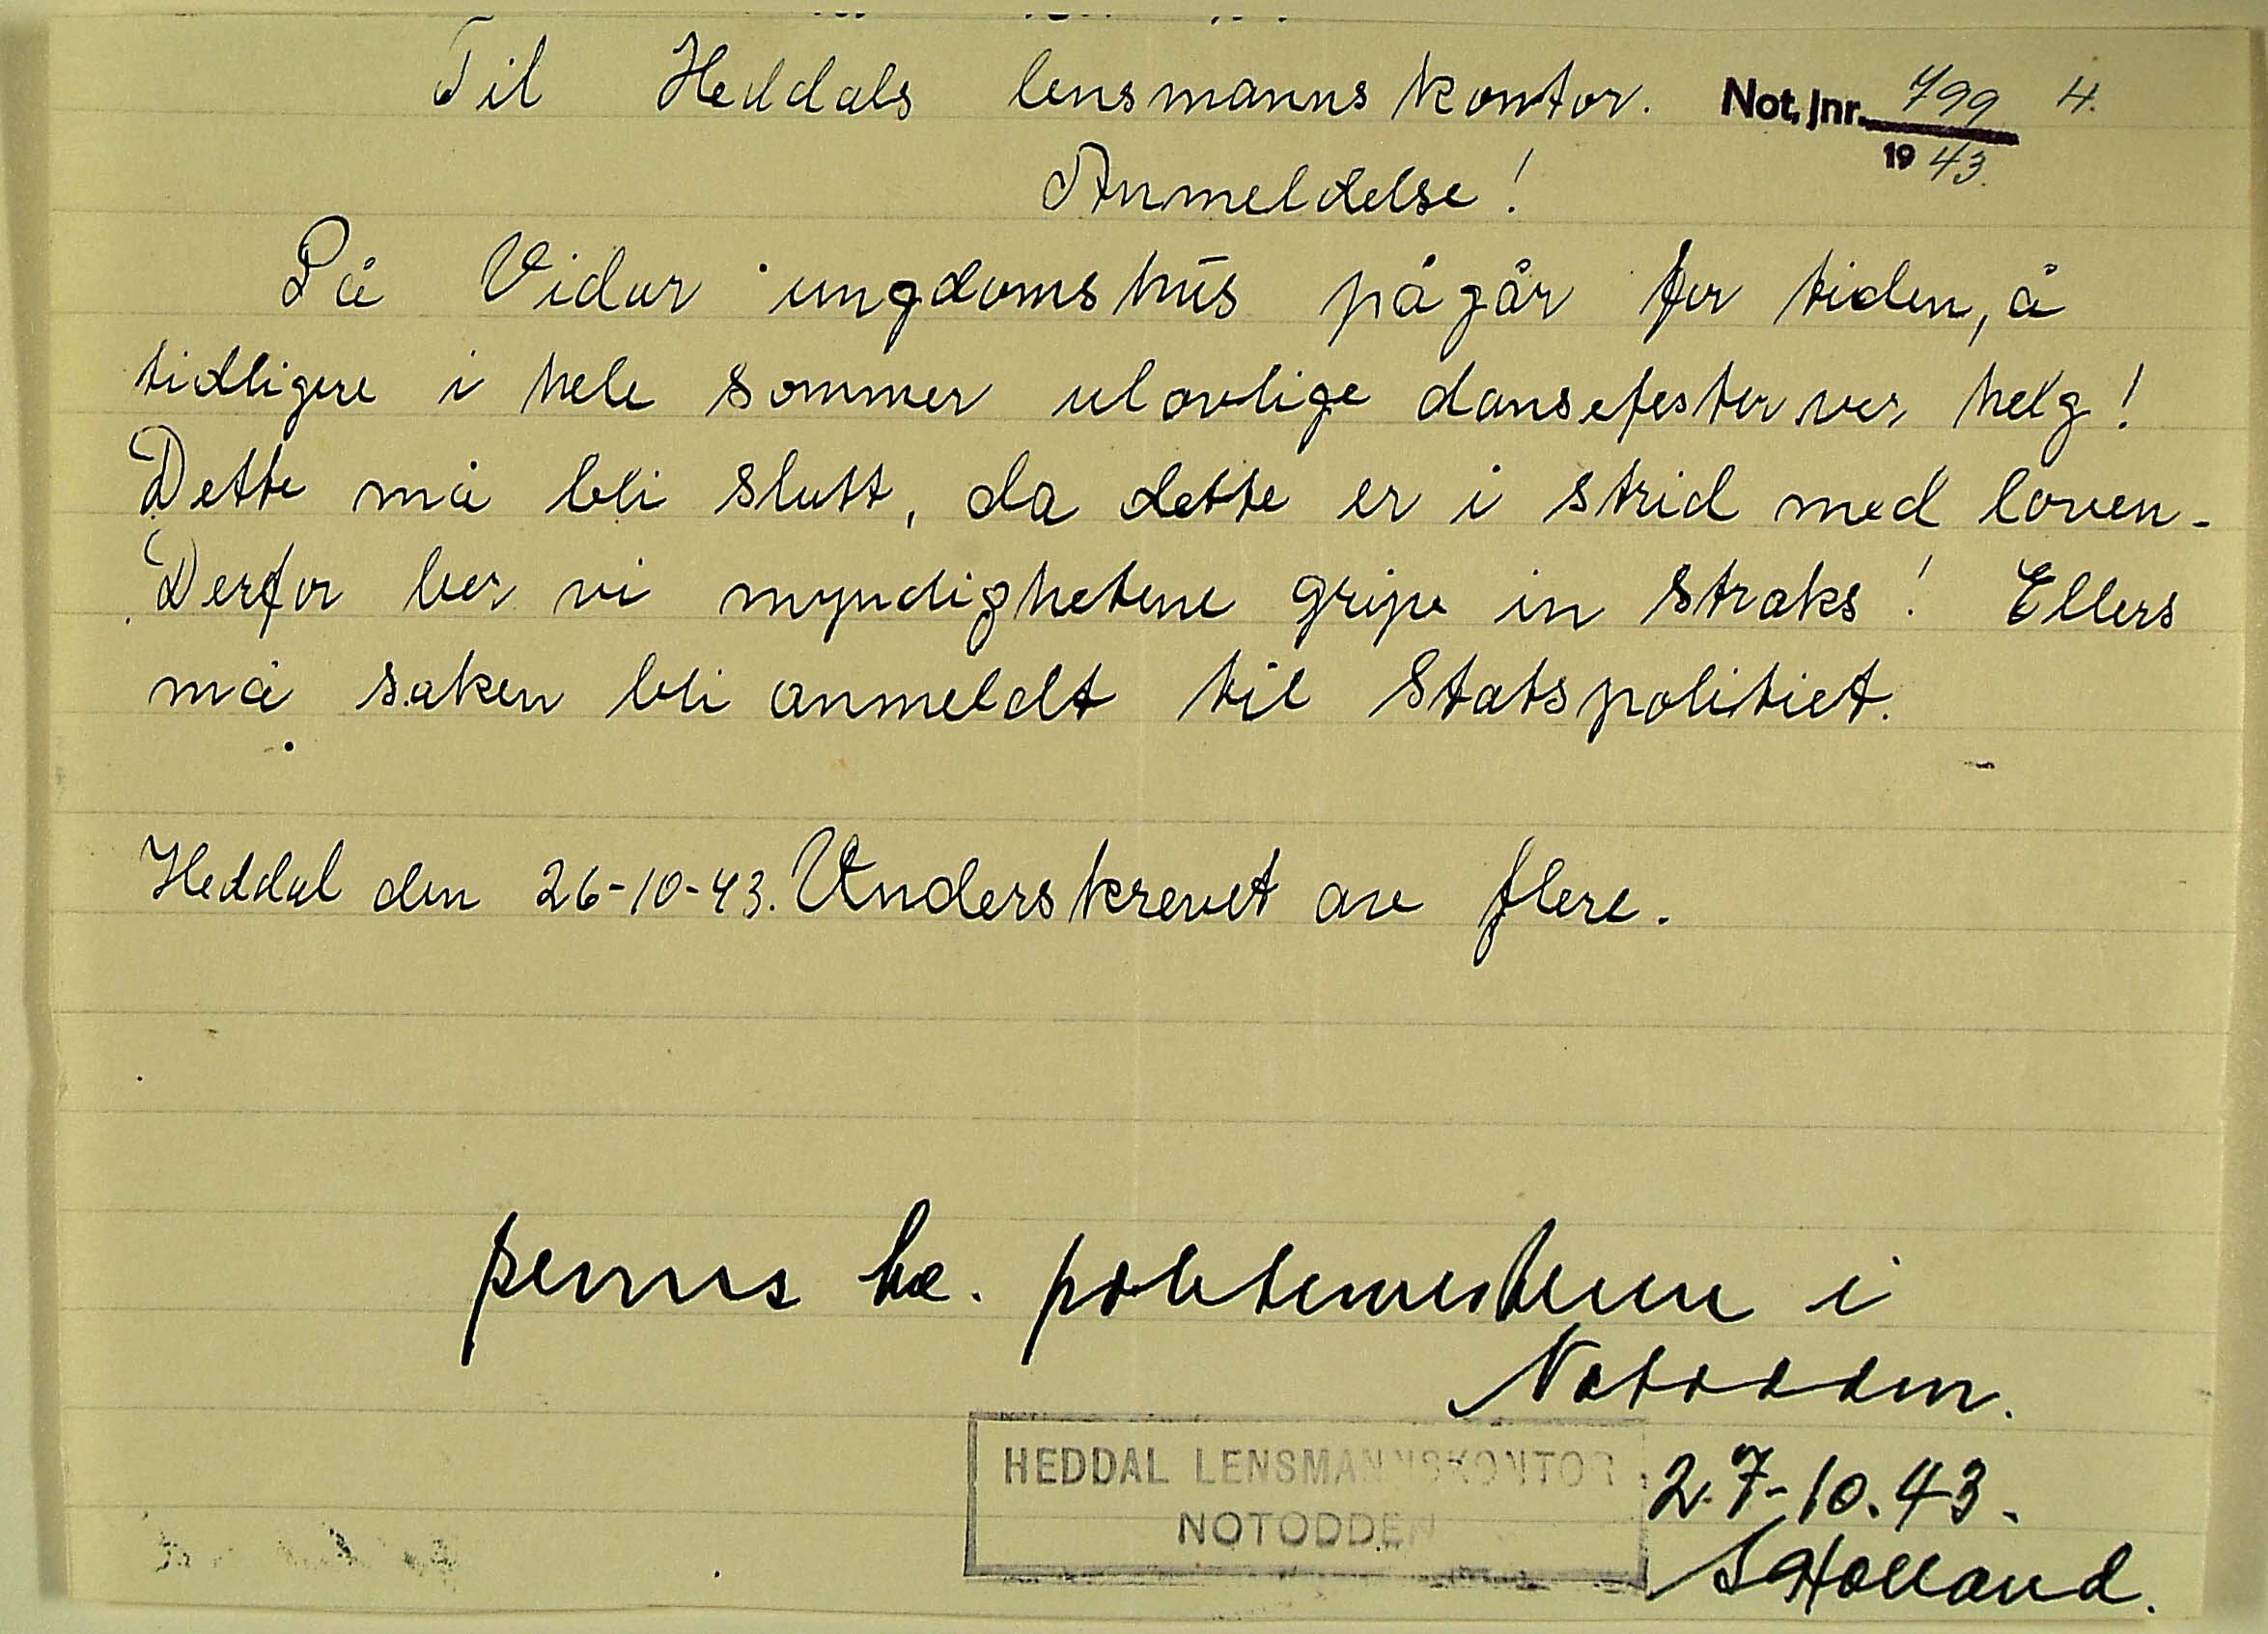 Til Heddals lensmannskontor. Not. Jnr. 799 H.
1943.
Anmeldelse!
På Vidar ungdomshus pågår for tiden, å
tidligere i hele sommer ulovlige dansefester ver helg!
Dette må bli slutt, da dette er i strid med loven-
Derfor ber vi myndighetene gripe in straks! Ellers
må saken bli anmeldt til Statspolitiet.
Heddal den 26-10-43. Underskrevet av flere.
politimesteren i
Notodden.
HEDDAL LENSMANNSKONTOR
NOTODDEN
27-10.43.
SHolland.